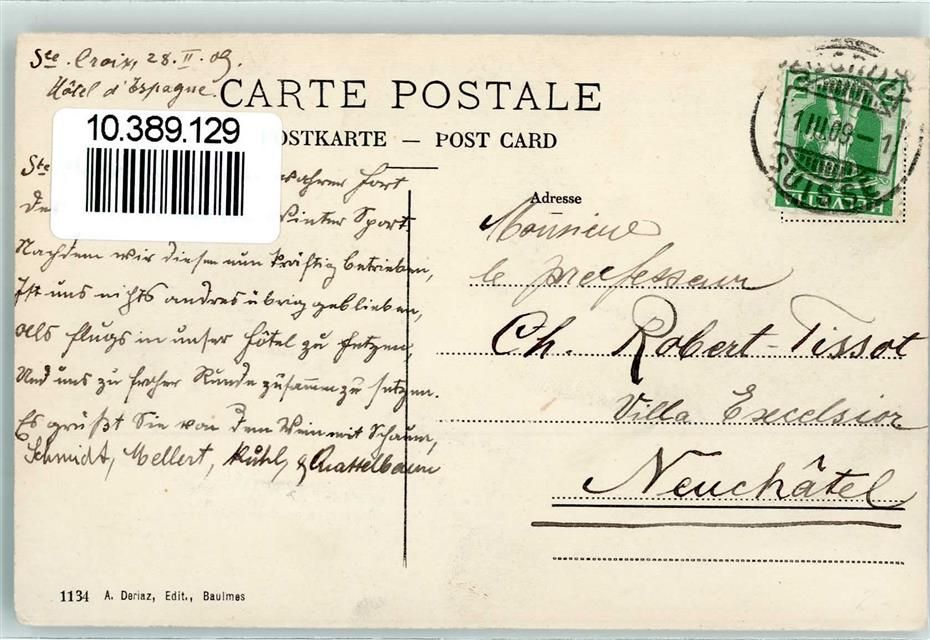 Ste. Croix, 28. II. 09.
Hôtel d'Espagne.
CARTE POSTALE
10.389.129
POSTKARTE — POST CARD
Ste wahrer Hort
De Winter Sport
Nachdem wir diesen nun kräftig betrieben,
Ist uns nichts andres übrig geblieben,
Als flugs in unser Hôtel zu fetzen,
Und uns zu froher Runde zusammen zu setzen.
Es grüßt Sie von dem Wein mit Schaum,
Schmidt, Mellert, Kuhl, & Quattelbaum
Adresse
Monsieur
le professeur
Ch. Robert-Tissot
Villa Excelsior
Neuchâtel
1 III 09 - 1
SUISSE
HELVETIA
1134 A. Deriaz, Edit., Baulmes